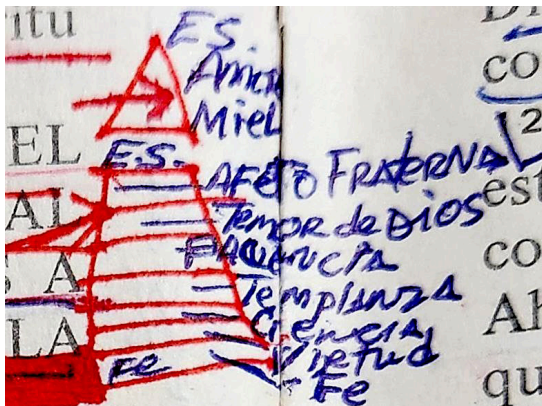 itu
ES.
Amor
Miel
EL
E.S.
AFETO FRATERNAL
AL
Temor de DIOS
PACIENCIA
A
Templanza
Ciencia
LA
Virtud
Fe
Fe
co
2
est
co
Ah
qu